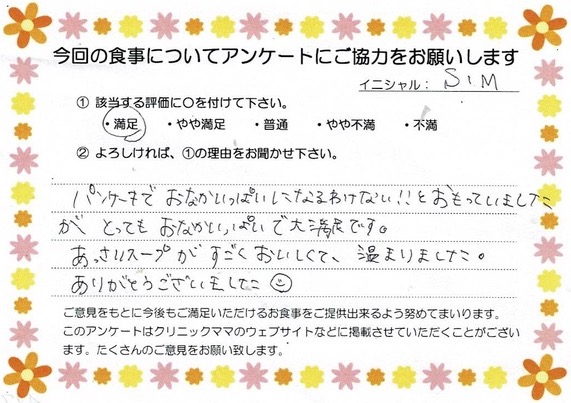 今回の食事についてアンケートにご協力をお願いします
イニシャル： S．M
① 該当する評価に〇を付けて下さい。
・満足 ・やや満足 ・普通 ・やや不満 ・不満
② よろしければ、①の理由をお聞かせ下さい。
パンケーキで おなかいっぱいになるわけない！！と おもっていました
が とっても おなかいっぱいで大満足です。
あっさりスープが すごくおいしくて、温まりました。
ありがとうございました
ご意見をもとに今後もご満足いただけるお食事をご提供出来るよう努めてまいります。
このアンケートはクリニックママのウェブサイトなどに掲載させていただくことがござい
ます。たくさんのご意見をお願い致します。